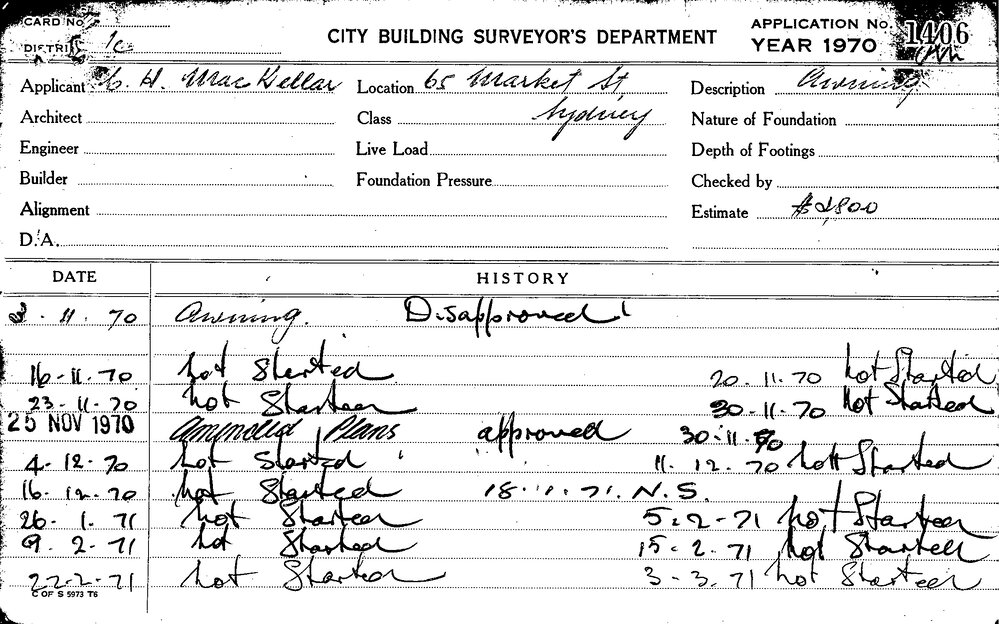 CARD No.
DISTRICT 1c
CITY BUILDING SURVEYOR'S DEPARTMENT
APPLICATION No. 1406
YEAR 1970
Applicant H. MacKellar Location 65 Market St Description Awning
Architect Class Sydney Nature of Foundation
Engineer Live Load Depth of Footings
Builder Foundation Pressure Checked by
Alignment Estimate $2800
D.A.
DATE HISTORY
11. 70 Awning. Disapproved
16-11-70 not Started 20.11.70 not Started
23-11-70 not Started 30-11-70 not Started
25 NOV 1970 Amended Plans approved 30-11-70
4-12-70 not Started 11. 12. 70 not Started
16.12.70 not Started 18.1.71. N.S.
26.1.71 not Started 5.2-71 not Started
9.2-71 not Started 15-2.71 not Started
22-2-71 not Started 3-3.71 not Started
C OF S 5973 T6